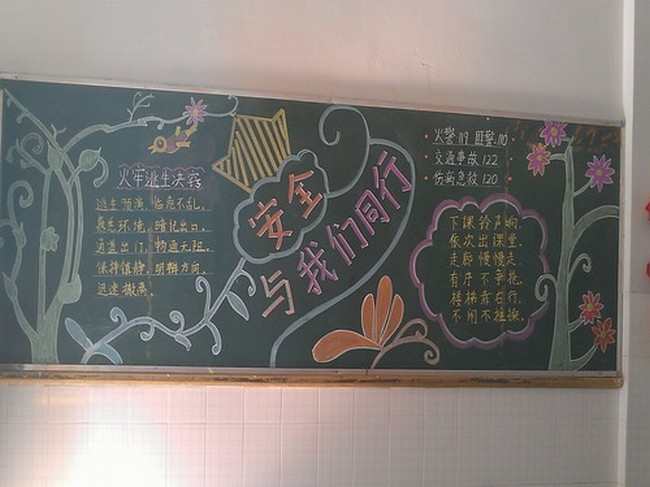 火牢逃生决窍
逃生预演，临危不乱，
熟悉环境，暗记出口，
通道出口，物通无阻，
保持镇静，明辨方向，
迅速撤离。
安全
与我们同行
火警119 匪警110
交通事故122
伤病急救120
下课铃声响，
依次出课堂，
走廊慢慢走，
有序不争抢，
楼梯靠右行，
不闹不推搡。